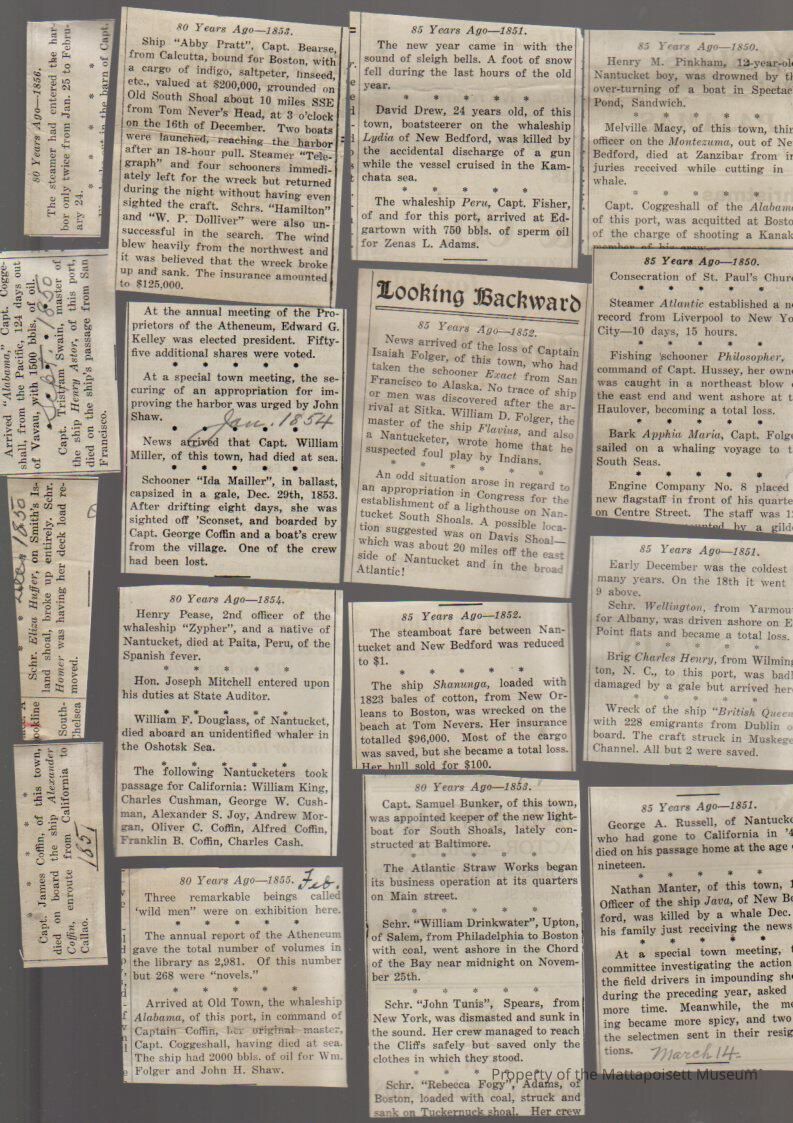 80 Years Ago—1856.
The steamer had entered the har-
bor only twice from Jan. 25 to Febru-
ary 24.
* * * * *
in the barn of Capt.
Arrived "Alabama," Capt. Cogge-
shall, from the Pacific, 124 days out
of Vavau, with 1500 bbls. of oil.
Sept. 1850
Capt. Tristram Swain, master of
the ship Henry Astor, of this port,
died on the ship's passage from San
Francisco.
Dec. 1850
Schr. Eliza Huffer, on Smith's Is-
land shoal, broke up entirely. Schr.
Homer was having her deck load re-
moved.
ookline
South-
helsea
* * * * *
Capt. James Coffin, of this town,
died on board the ship Alexander
Coffin, enroute from California to
Callao.
1851
80 Years Ago—1853.
Ship "Abby Pratt", Capt. Bearse,
from Calcutta, bound for Boston, with
a cargo of indigo, saltpeter, linseed,
etc., valued at $200,000, grounded on
Old South Shoal about 10 miles SSE
from Tom Never's Head, at 3 o'clock
on the 16th of December. Two boats
were launched, reaching the harbor
after an 18-hour pull. Steamer "Tele-
graph" and four schooners immedi-
ately left for the wreck but returned
during the night without having even
sighted the craft. Schrs. "Hamilton"
and "W. P. Dolliver" were also un-
successful in the search. The wind
blew heavily from the northwest and
it was believed that the wreck broke
up and sank. The insurance amounted
to $125,000.
At the annual meeting of the Pro-
prietors of the Atheneum, Edward G.
Kelley was elected president. Fifty-
five additional shares were voted.
* * * * *
At a special town meeting, the se-
curing of an appropriation for im-
proving the harbor was urged by John
Shaw.
Jan. 1854
News arrived that Capt. William
Miller, of this town, had died at sea.
* * * * *
Schooner "Ida Mailler", in ballast,
capsized in a gale, Dec. 29th, 1853.
After drifting eight days, she was
sighted off 'Sconset, and boarded by
Capt. George Coffin and a boat's crew
from the village. One of the crew
had been lost.
80 Years Ago—1854.
Henry Pease, 2nd officer of the
whaleship "Zypher", and a native of
Nantucket, died at Paita, Peru, of the
Spanish fever.
* * * * *
Hon. Joseph Mitchell entered upon
his duties at State Auditor.
* * * * *
William F. Douglass, of Nantucket,
died aboard an unidentified whaler in
the Oshotsk Sea.
* * * * *
The following Nantucketers took
passage for California: William King,
Charles Cushman, George W. Cush-
man, Alexander S. Joy, Andrew Mor-
gan, Oliver C. Coffin, Alfred Coffin,
Franklin B. Coffin, Charles Cash.
80 Years Ago—1855.
Feb.
Three remarkable beings called
'wild men' were on exhibition here.
* * * * *
The annual report of the Atheneum
gave the total number of volumes in
the library as 2,981. Of this number
but 268 were "novels."
* * * * *
Arrived at Old Town, the whaleship
Alabama, of this port, in command of
Captain Coffin, her original master,
Capt. Coggeshall, having died at sea.
The ship had 2000 bbls. of oil for Wm.
Folger and John H. Shaw.
85 Years Ago—1851.
The new year came in with the
sound of sleigh bells. A foot of snow
fell during the last hours of the old
year.
* * * * *
David Drew, 24 years old, of this
town, boatsteerer on the whaleship
Lydia of New Bedford, was killed by
the accidental discharge of a gun
while the vessel cruised in the Kam-
chata sea.
* * * * *
The whaleship Peru, Capt. Fisher,
of and for this port, arrived at Ed-
gartown with 750 bbls. of sperm oil
for Zenas L. Adams.
Looking Backward
85 Years Ago—1852.
News arrived of the loss of Captain
Isaiah Folger, of this town, who had
taken the schooner Exact from San
Francisco to Alaska. No trace of ship
or men was discovered after the ar-
rival at Sitka. William D. Folger, the
master of the ship Flavius, and also
a Nantucketer, wrote home that he
suspected foul play by Indians.
* * * * *
An odd situation arose in regard to
an appropriation in Congress for the
establishment of a lighthouse on Nan-
tucket South Shoals. A possible loca-
tion suggested was on Davis Shoal—
which was about 20 miles off the east
side of Nantucket and in the broad
Atlantic!
85 Years Ago—1852.
The steamboat fare between Nan-
tucket and New Bedford was reduced
to $1.
* * * * *
The ship Shanunga, loaded with
1823 bales of cotton, from New Or-
leans to Boston, was wrecked on the
beach at Tom Nevers. Her insurance
totalled $96,000. Most of the cargo
was saved, but she became a total loss.
Her hull sold for $100.
80 Years Ago—1853.
Capt. Samuel Bunker, of this town,
was appointed keeper of the new light-
boat for South Shoals, lately con-
structed at Baltimore.
* * * * *
The Atlantic Straw Works began
its business operation at its quarters
on Main street.
* * * * *
Schr. "William Drinkwater", Upton,
of Salem, from Philadelphia to Boston
with coal, went ashore in the Chord
of the Bay near midnight on Novem-
ber 25th.
* * * * *
Schr. "John Tunis", Spears, from
New York, was dismasted and sunk in
the sound. Her crew managed to reach
the Cliffs safely but saved only the
clothes in which they stood.
* * * * *
Schr. "Rebecca Fogy", Adams, of
Boston, loaded with coal, struck and
sank on Tuckernuck shoal. Her crew
85 Years Ago—1850.
Henry M. Pinkham, 12-year-old
Nantucket boy, was drowned by th
over-turning of a boat in Spectac
Pond, Sandwich.
* * * * *
Melville Macy, of this town, thir
officer on the Montezuma, out of Ne
Bedford, died at Zanzibar from in
juries received while cutting in
whale.
* * * * *
Capt. Coggeshall of the Alabama
of this port, was acquitted at Bosto
of the charge of shooting a Kanak
member of his crew.
85 Years Ago—1850.
Consecration of St. Paul's Churc
* * * * *
Steamer Atlantic established a ne
record from Liverpool to New Yo
City—10 days, 15 hours.
* * * * *
Fishing schooner Philosopher,
command of Capt. Hussey, her owne
was caught in a northeast blow
the east end and went ashore at t
Haulover, becoming a total loss.
* * * * *
Bark Apphia Maria, Capt. Folge
sailed on a whaling voyage to t
South Seas.
* * * * *
Engine Company No. 8 placed
new flagstaff in front of his quarte
on Centre Street. The staff was 12
by a gilde
85 Years Ago—1851.
Early December was the coldest
many years. On the 18th it went
9 above.
Schr. Wellington, from Yarmou
for Albany, was driven ashore on E
Point flats and became a total loss.
* * * * *
Brig Charles Henry, from Wilming
ton, N. C., to this port, was badl
damaged by a gale but arrived here
* * * * *
Wreck of the ship "British Queen
with 228 emigrants from Dublin o
board. The craft struck in Muskege
Channel. All but 2 were saved.
85 Years Ago—1851.
George A. Russell, of Nantucke
who had gone to California in '4
died on his passage home at the age
nineteen.
* * * * *
Nathan Manter, of this town, 1
Officer of the ship Java, of New Be
ford, was killed by a whale Dec.
his family just receiving the news
* * * * *
At a special town meeting, t
committee investigating the action
the field drivers in impounding she
during the preceding year, asked
more time. Meanwhile, the me
ing became more spicy, and two
the selectmen sent in their resig
tions.
March 14.
Property of the Mattapoisett Museum